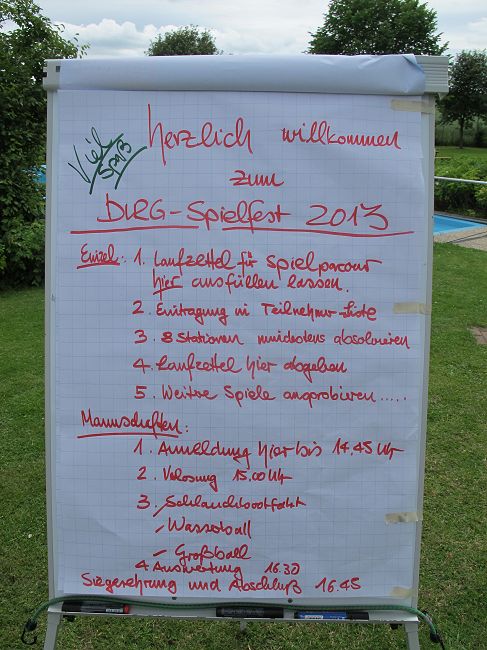 Viel
Spaß
Herzlich willkommen
zum
DLRG-Spielfest 2013
Einzel: 1. Laufzettel für Spielparcour
hier ausfüllen lassen.
2. Eintragung in Teilnehmer-Liste
3. 8 Stationen mindestens absolvieren
4. Laufzettel hier abgeben
5. Weitere Spiele ausprobieren.....
Mannschaften:
1. Anmeldung hier bis 14.45 Uhr
2. Verlosung 15.00 Uhr
3. - Schlauchbootfahrt
- Wasserball
- Großball
4. Auswertung 16.30
Siegerehrung und Abschluß 16.45